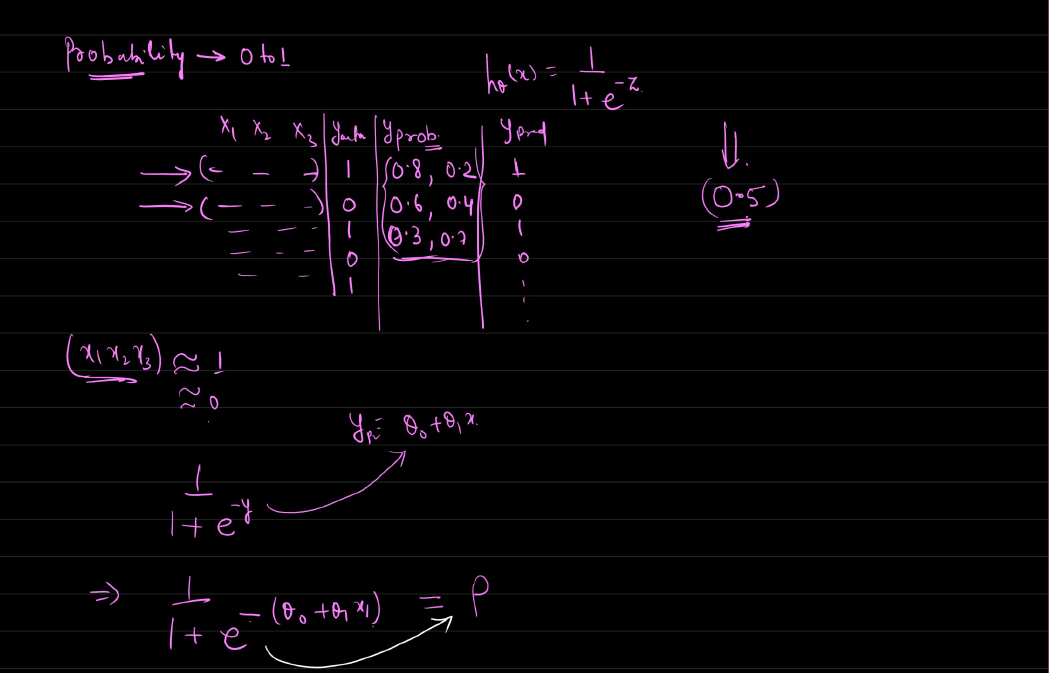 Probability → 0 to 1
hθ(x) = 1 / (1 + e^-z)
x1 x2 x3 | yactu | yprob | ypred
→ (- - -) | 1 | (0.8, 0.2) | 1
→ (- - -) | 0 | 0.6, 0.4 | 0
- - - | 1 | 0.3, 0.7 | 1
- - - | 0 | | 0
- - - | 1 | | ⋮
⇓
(0.5)
(x1 x2 x3) ≈ 1
≈ 0
yp = θ0 + θ1 x
1 / (1 + e^-y)
⇒ 1 / (1 + e^-(θ0 + θ1 x1)) = P